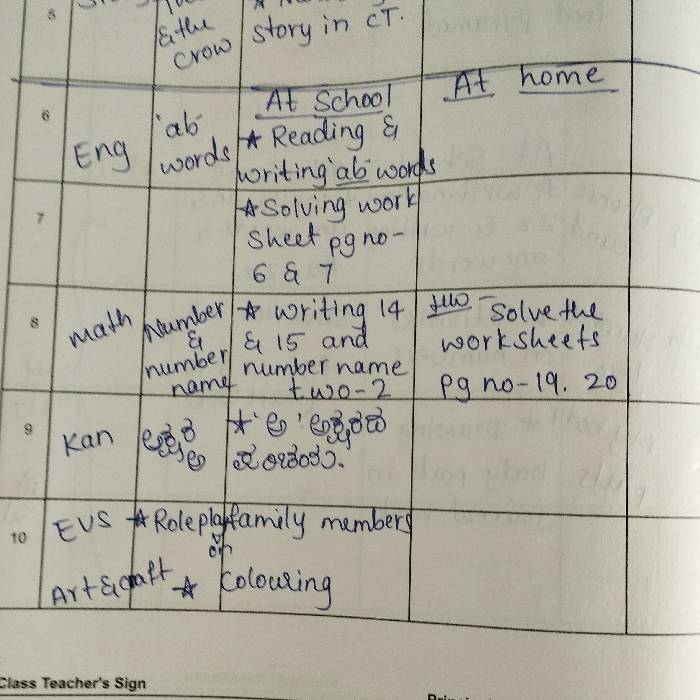 5
& the
crow
story in CT.
At School
At home
6
Eng
'ab'
words
★ Reading &
writing 'ab' words
7
★ Solving work
Sheet pg no-
6 & 7
8
math
Number
&
number
name
★ writing 14
& 15 and
number name
two-2
HW - Solve the
worksheets
pg no-19. 20
9
Kan
ಅಕ್ಷರ
★ 'ಅ' ಅಕ್ಷರದ
10
EVS
★ Roleplay on family members
Art & craft
★ Colouring
Class Teacher's Sign